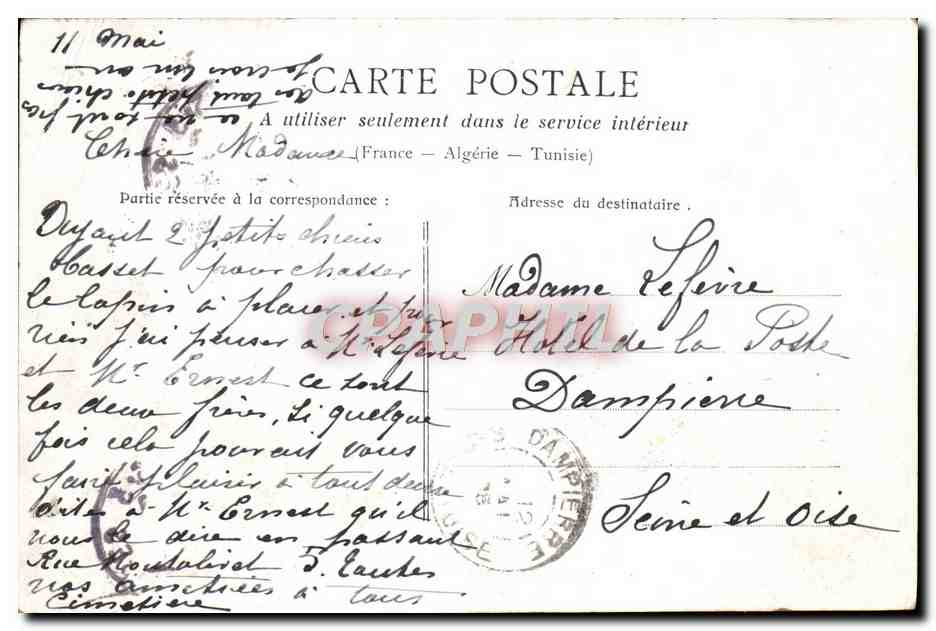 11 Mai
je crois un an
des tout petits chiens
ce ne sont pas
CARTE POSTALE
A utiliser seulement dans le service intérieur
Chère Madame
(France — Algérie — Tunisie)
Partie réservée à la correspondance :
Adresse du destinataire .
Ayant 2 petits chiens
basset pour chasser
le lapin à placer et pour
rien j'ai penser à Mr Lefevre
et Mr Ernest ce sont
les deux frères, si quelque
fois cela pourait vous
faire plaisir à tout deux
dites à Mr Ernest qu'il
nous le dire en passant
Rue 5
nos amitiées à tous
Cimetière
Madame Lefèvre
Hôtel de la Poste
Dampierre
Seine et Oise
DAMPIERRE
12
CPAPHIL